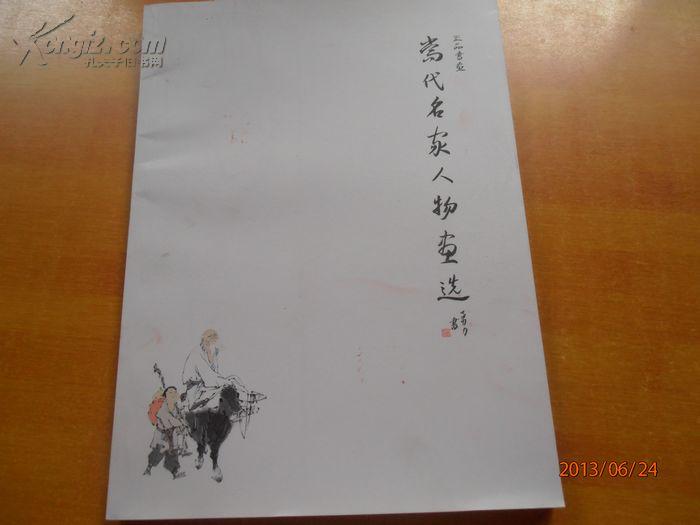 Kongfz.com
孔夫子旧书网
当代名家人物画选
2013/06/24